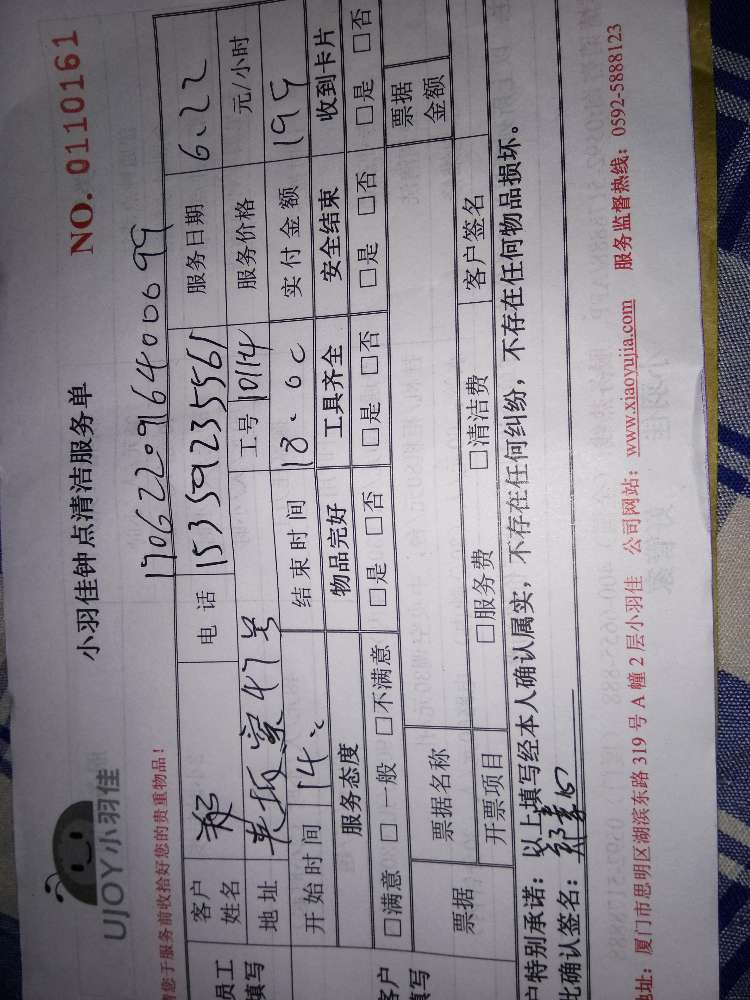 UJOY小羽佳
小羽佳钟点清洁服务单
NO. 0110161
请您于服务前收拾好您的贵重物品!
1706220916400699
员工填写
客户姓名 郑 电话 15359235561 服务日期 6.22
地址 47号 工号 10114 服务价格 元/小时
开始时间 14: 结束时间 18:00 实付金额 199
服务态度 物品完好 工具齐全 安全结束 收到卡片
客户填写
□满意 □一般 □不满意 □是 □否 □是 □否 □是 □否 □是 □否
票据 票据名称 票据金额
开票项目 □服务费 □清洁费 客户签名
户特别承诺:以上填写经本人确认属实,不存在任何纠纷,不存在任何物品损坏。
此确认签名:
地址:厦门市思明区湖滨东路 319 号 A 幢 2 层小羽佳 公司网站:www.xiaoyujia.com 服务监督热线:0592-5888123